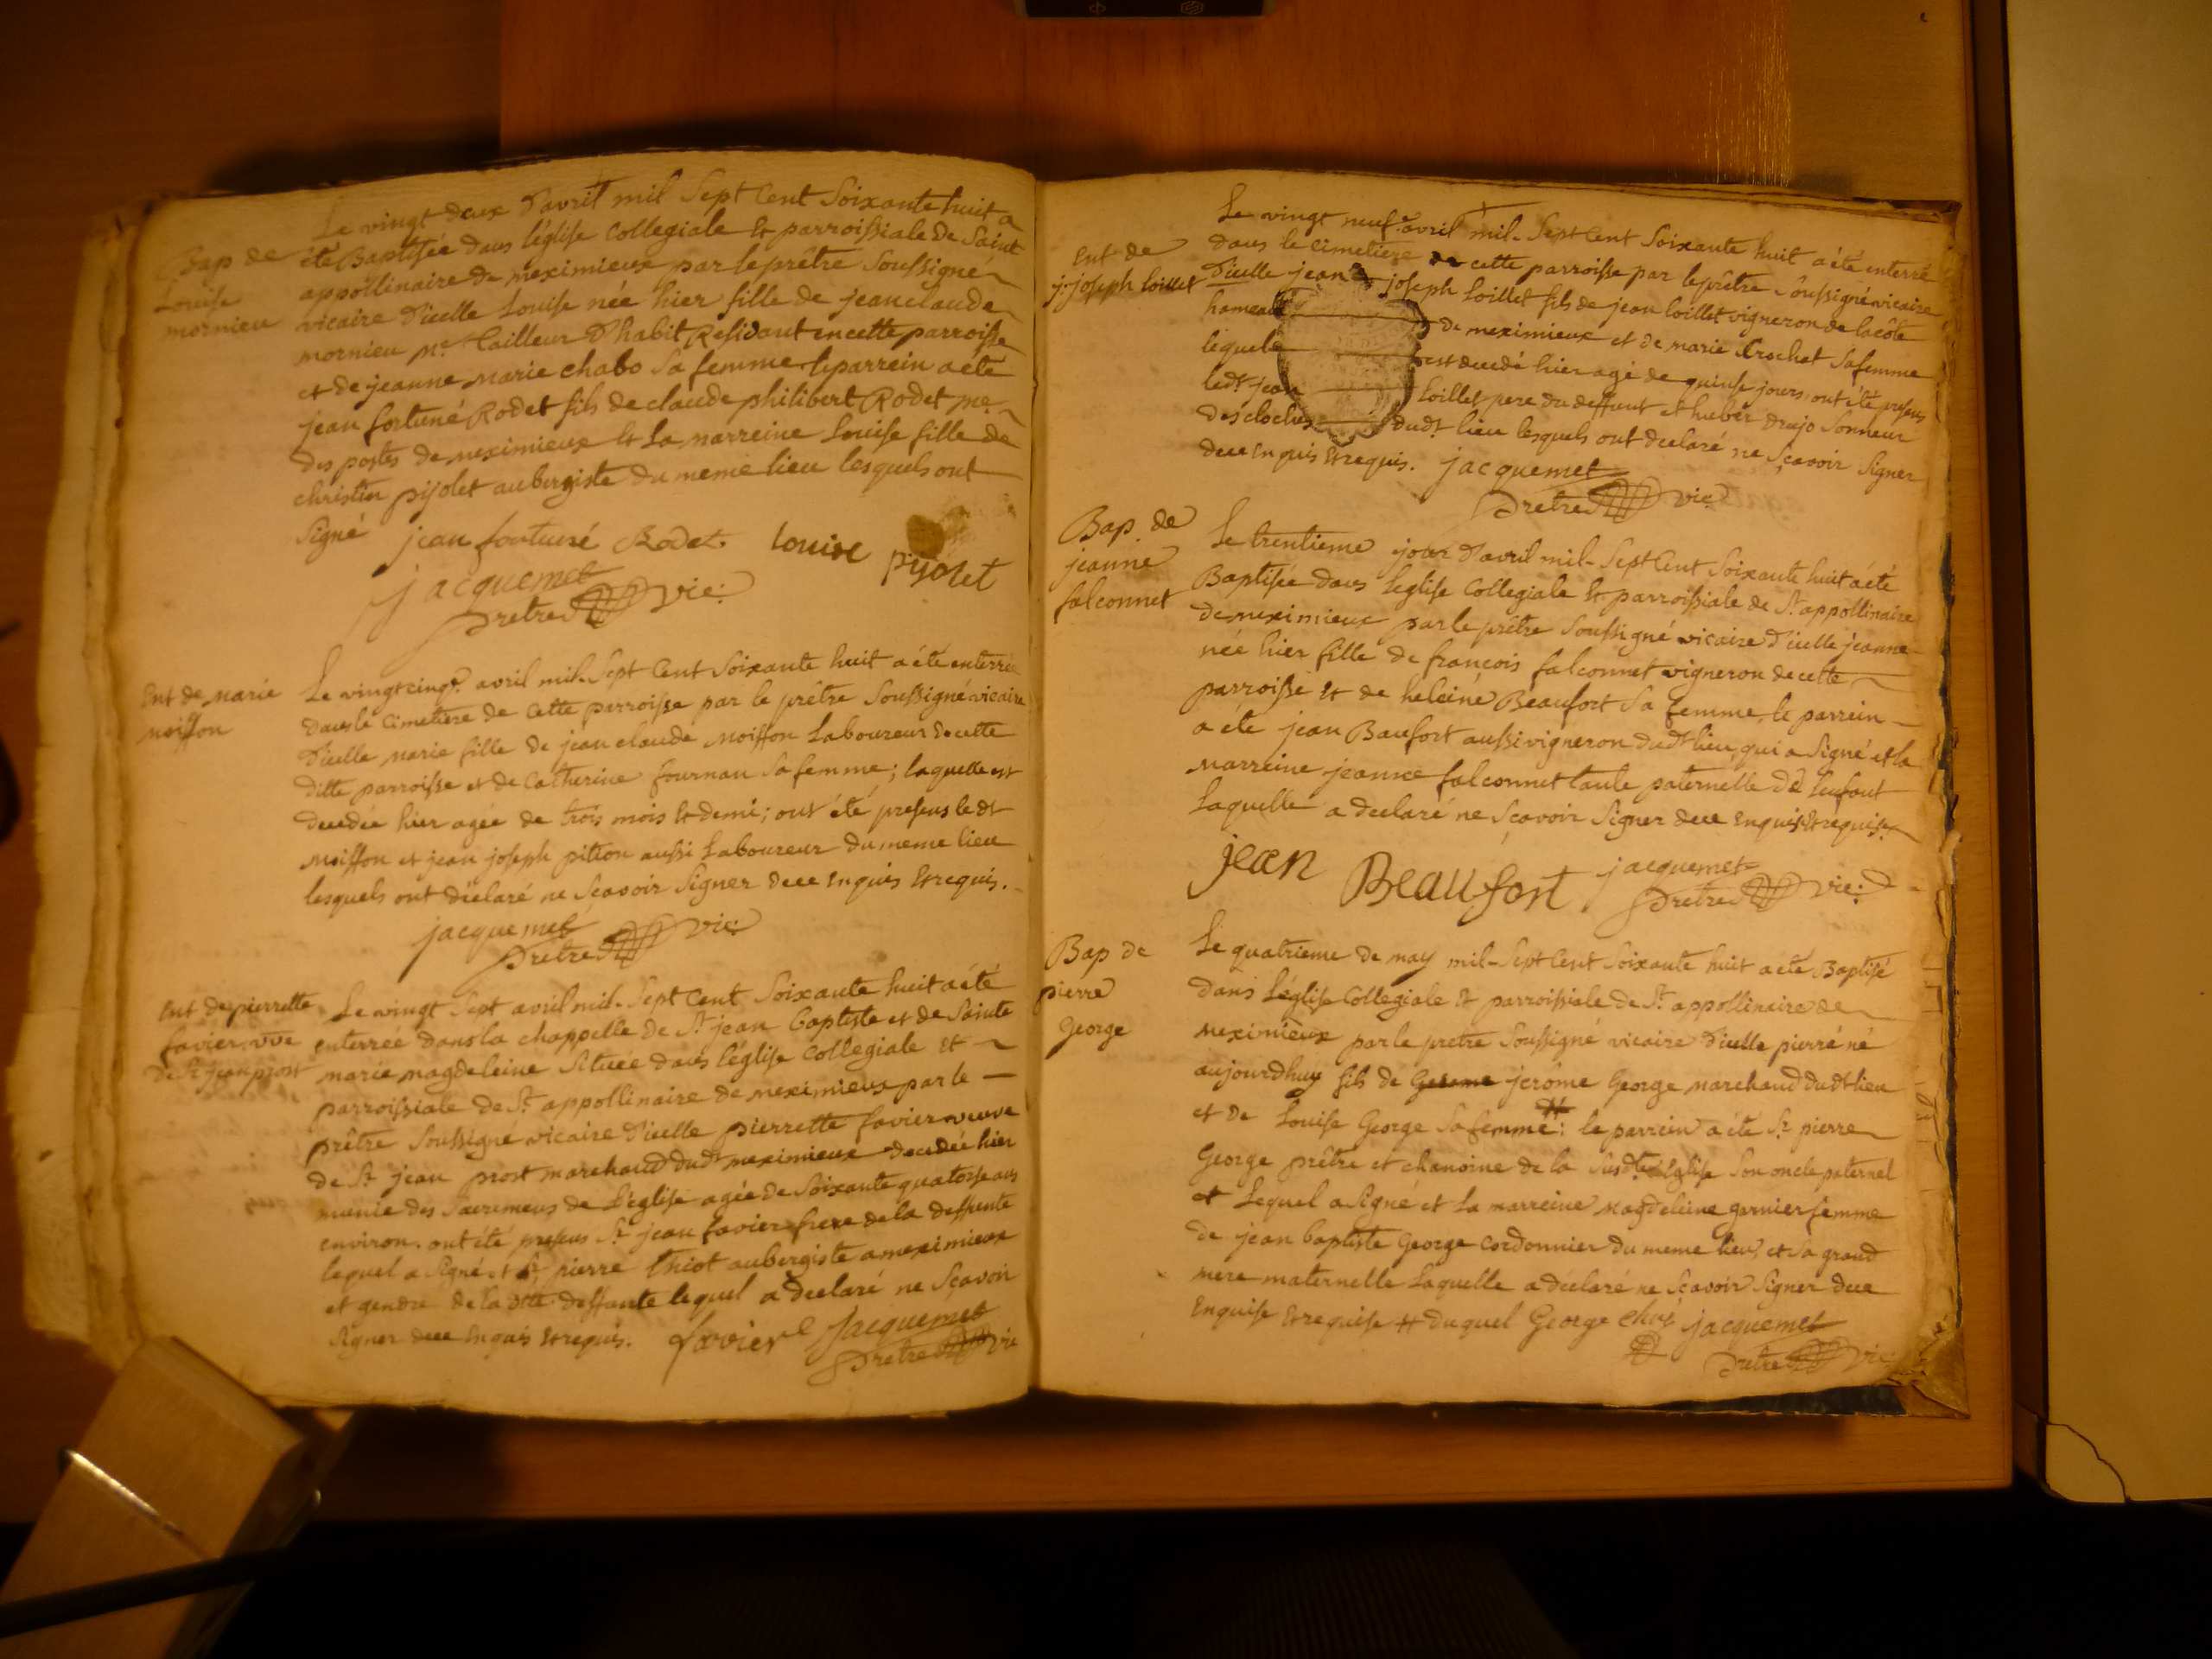 Bap de
Louise
mornieu
Le vingt deux d'avril mil Sept Cent Soixante huit a
été Baptisée dans l'église Collegiale et parroissiale de Saint
appollinaire de meximieux par le prêtre Soussigné
vicaire d'icelle Louise née hier fille de jean claude
mornieu me tailleur d'habit Residant en cette parroisse
et de jeanne marie chabo Sa femme le parrein a été
jean fortuné Rodet fils de claude philibert Rodet me
des postes de meximieux et La marreine Louise fille de
christin pijolet aubergiste du meme lieu lesquels ont
Signé jean fortuné Rodet Louise pijolet
jacquemet
prêtre vic:
Ent de marie
moiffon
Le vingt cinq avril mil Sept Cent Soixante huit a été enterrée
dans le Cimetiere de Cette parroisse par le prêtre Soussigné vicaire
d'icelle marie fille de jean claude moiffon Laboureur de cette
ditte parroisse et de Catherine fournau Sa femme; laquelle est
decedée hier agée de trois mois et demi; ont été presens le dt
moiffon et jean joseph pition aussi Laboureur du meme lieu
lesquels ont déclaré ne Sçavoir Signer dece enquis et requis.
jacquemet
prêtre vic:
Ent de pierrette
favier vve
de Sr jean prost
Le vingt Sept avril mil Sept Cent Soixante huit a été
enterrée dans la chappelle de St jean baptiste et de Sainte
marie magdeleine Située dans l'église Collegiale et
parroissiale de St appollinaire de meximieux par le
prêtre Soussigné vicaire d'icelle pierrette favier veuve
de Sr jean prost marchand dudt meximieux decedée hier
munie des Sacremens de L'église agée de Soixante quatorse ans
environ. ont été presens Sr jean favier frere de la deffunte
lequel a Signé et Sr pierre thiot aubergiste a meximieux
et gendre de la dtte deffunte lequel a declaré ne Sçavoir
Signer dece enquis et requis. favier jacquemet
prêtre vic
Ent de
j. joseph loillet
Le vingt neuf avril mil Sept Cent Soixante huit a été enterré
dans le Cimetiere de cette parroisse par le prêtre Soussigné vicaire
d'icelle jean joseph loillet fils de jean loillet vigneron de la côte
hameau de meximieux et de marie Crochet Sa femme
lequel est decedé hier agé de quinse jours ont été presens
ledt jean loillet pere du deffunt et hubert drujo Sonneur
des cloches dudt lieu lesquels ont declaré ne Sçavoir Signer
dece enquis et requis. jacquemet
prêtre vic:
Bap de
jeanne
falconnet
Le trentieme jour d'avril mil Sept Cent Soixante huit a été
Baptisée dans l'eglise Collegiale et parroissiale de St appollinaire
de meximieux par le prêtre Soussigné vicaire d'icelle jeanne
née hier fille de francois falconnet vigneron de cette
parroisse et de heleine Beaufort Sa femme, le parrein
a été jean Baufort aussi vigneron dudt lieu, qui a Signé et la
marreine jeanne falconnet tante paternelle de l'enfant
Laquelle a declaré ne Sçavoir Signer dece enquise et requise
jean Beaufort jacquemet
prêtre vic:
Bap de
pierre
George
Le quatrieme de may mil Sept Cent Soixante huit a été Baptisé
dans L'église Collegiale et parroissiale de St appollinaire de
meximieux par le pretre Soussigné vicaire d'icelle pierre né
aujourdhuy fils de Gerome jerôme George marchand dudt lieu
et de Louise George Sa femme: # le parrein a été Sr pierre
George prêtre et chanoine de la Susdte Eglise Son oncle paternel
et Lequel a Signé et La marreine Magdeleine garnier femme
de jean baptiste George Cordonnier du meme lieu, et Sa grand
mere maternelle Laquelle a déclaré ne Sçavoir Signer dece
enquise et requise # duquel George chne jacquemet
prêtre vic